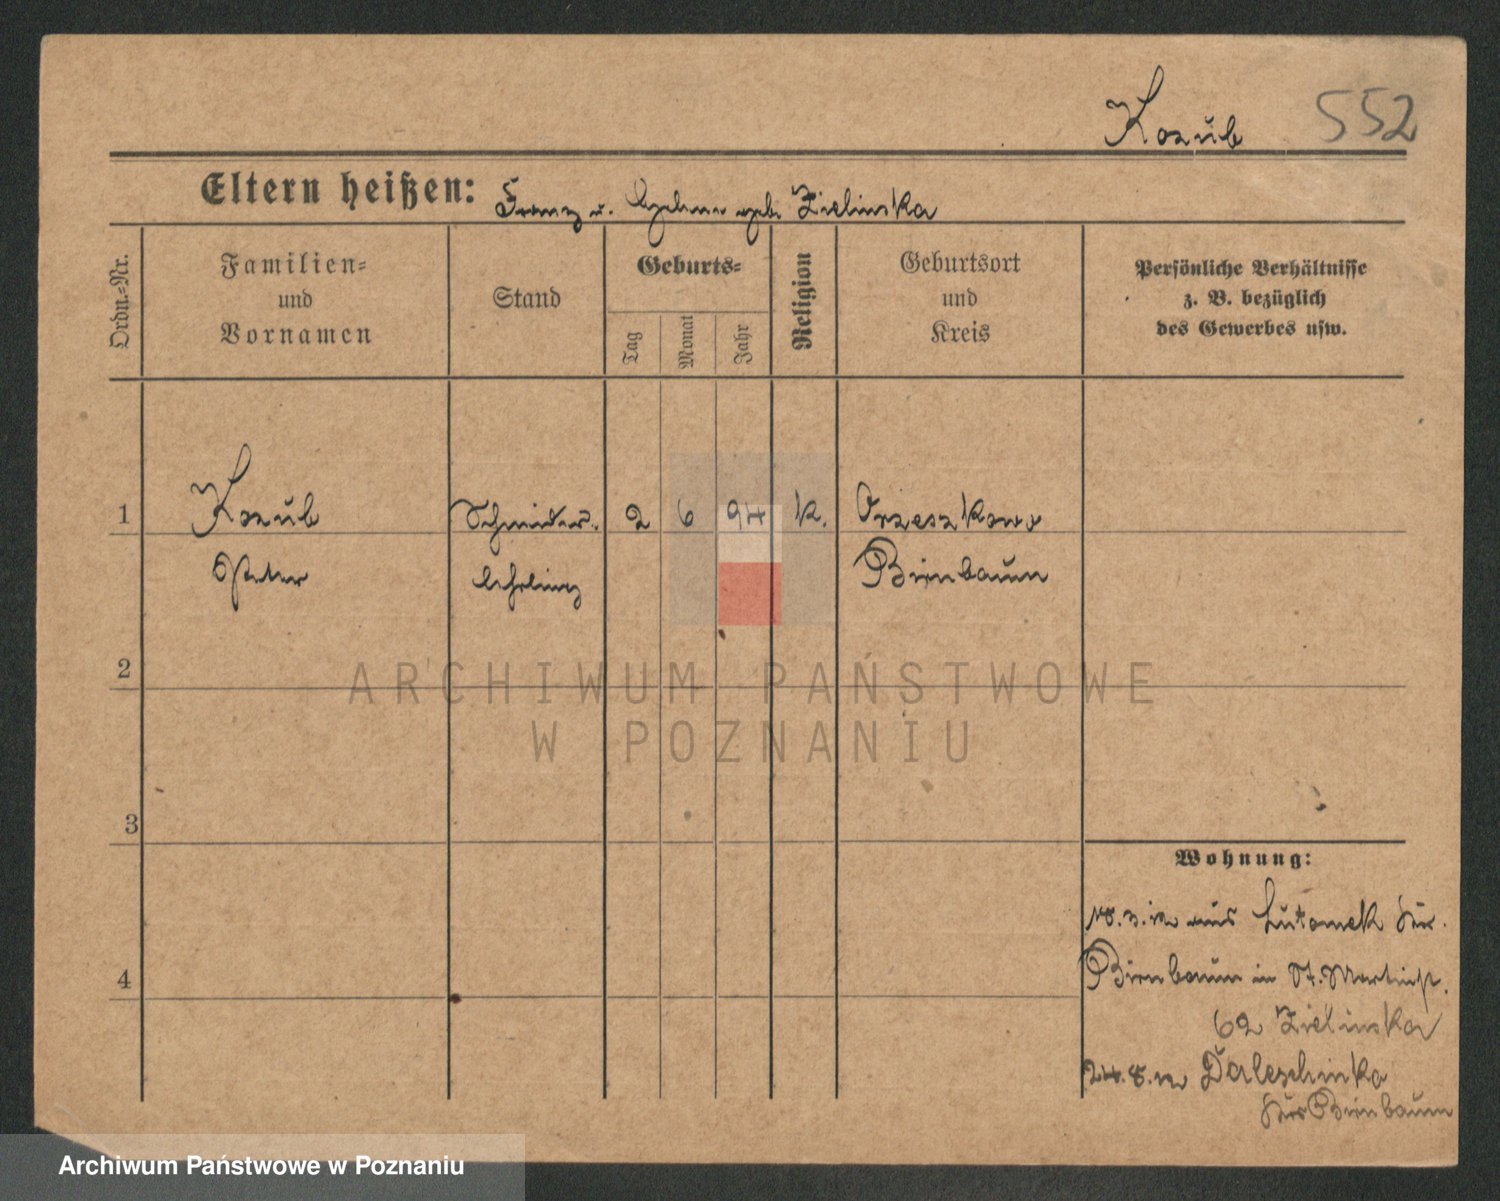 Kozub 552
Eltern heißen: Franz u. geb. Zielinska
Ordn.-Nr.
Familien-
und
Vornamen
Stand
Geburts-
Tag
Monat
Jahr
Religion
Geburtsort
und
Kreis
Persönliche Verhältnisse
z. B. bezüglich
des Gewerbes usw.
1 Kozub Schneider- 2 6 94 k. Orzeszkowo
Peter lehrling Birnbaum
2
ARCHIWUM PAŃSTWOWE
W POZNANIU
3
Wohnung:
aus Lutomek Kr.
4 Birnbaum in St. Martinstr.
62 Zielinska
24.8. Daleschinko
Kr Birnbaum
Archiwum Państwowe w Poznaniu